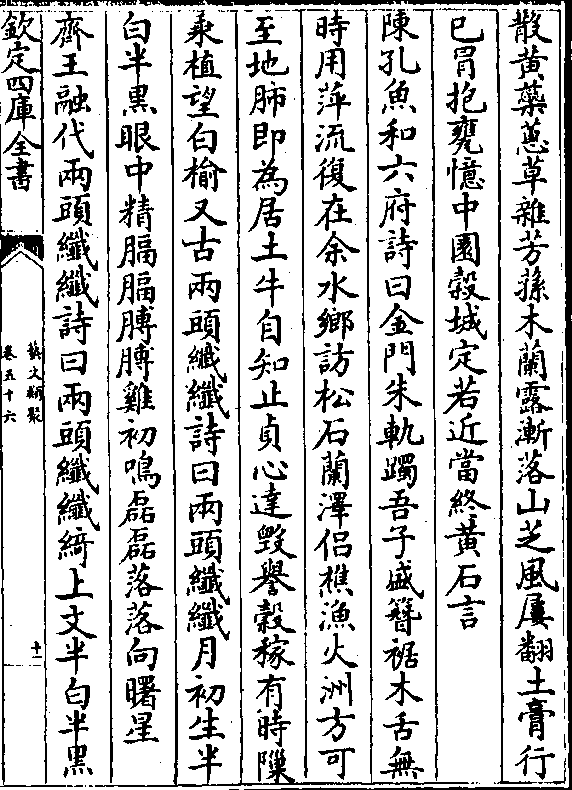 散黃藥蕙草雜芳蓀木蘭露漸落山芝風屢翻土膏行
已冐抱甕憶中園穀城定若近當終黃石言
陳孔魚和六府詩曰金門朱軌躅吾子盛簪裾木舌無
時用萍流復在余水鄉訪松石蘭澤侣樵漁火洲方可
至地肺即為居土牛自知止貞心達毀譽穀稼有時隟
乘植望白榆又古兩頭纖纖詩曰兩頭纖纖月初生半
白半黑眼中精腷腷膊膊雞初鳴磊磊落落向曙星
齊王融代兩頭纖纖詩曰兩頭纖纖綺上文半白半黑
欽定四庫全書
藝文類聚
卷五十六
十一